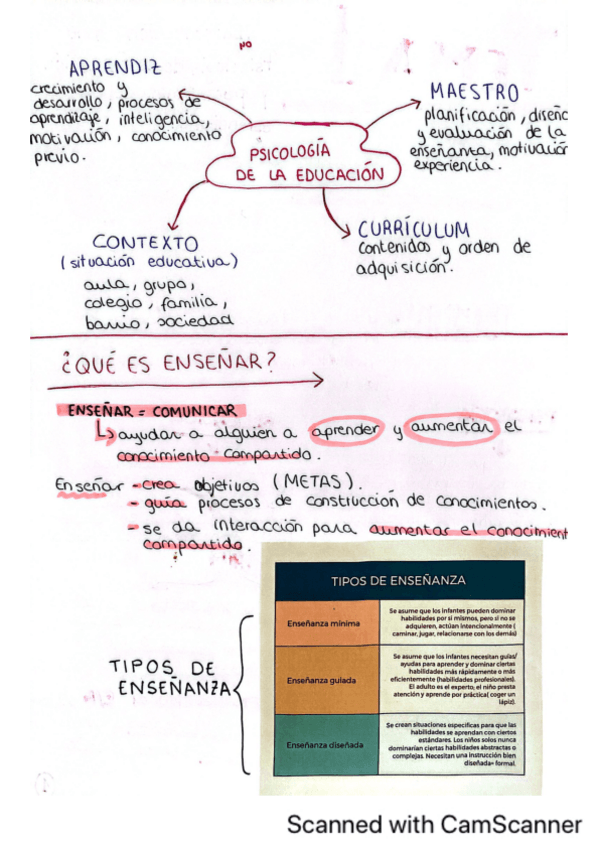 NO
APRENDIZ
crecimiento y
desarrollo, procesos de
aprendizaje, inteligencia,
motivación, conocimiento
previo.
MAESTRO
planificación, diseño
y evaluación de la
enseñanza, motivación
experiencia.
PSICOLOGÍA
DE LA EDUCACIÓN
CONTEXTO
(situación educativa)
aula, grupo,
colegio, familia,
barrio, sociedad
CURRÍCULUM
contenidos y orden de
adquisición.
¿QUÉ ES ENSEÑAR?
ENSEÑAR = COMUNICAR
↳ ayudar a alguien a aprender y aumentar el
conocimiento compartido.
Enseñar - crea objetivos (METAS).
- guía procesos de construcción de conocimientos.
- se da interacción para aumentar el conocimient
compartido.
TIPOS DE
ENSEÑANZA
TIPOS DE ENSEÑANZA
Enseñanza mínima
Se asume que los infantes pueden dominar
habilidades por si mismos, pero si no se
adquieren, actúan intencionalmente (
caminar, jugar, relacionarse con los demás)
Enseñanza guiada
Se asume que los infantes necesitan guías/
ayudas para aprender y dominar ciertas
habilidades más rápidamente o más
eficientemente (habilidades profesionales).
El adulto es el experto; el niño presta
atención y aprende por práctica( coger un
lápiz).
Enseñanza diseñada
Se crean situaciones específicas para que las
habilidades se aprendan con ciertos
estándares. Los niños solos nunca
dominarían ciertas habilidades abstractas o
complejas. Necesitan una instrucción bien
diseñada= formal.
Scanned with CamScanner